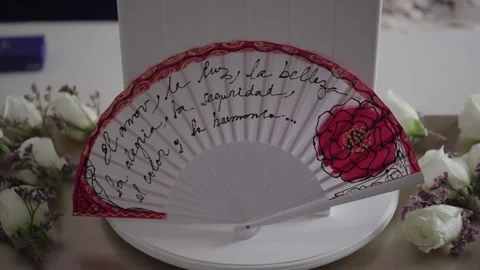 El amor, la luz, la belleza,
la alegría, la seguridad,
el color y la harmonía...